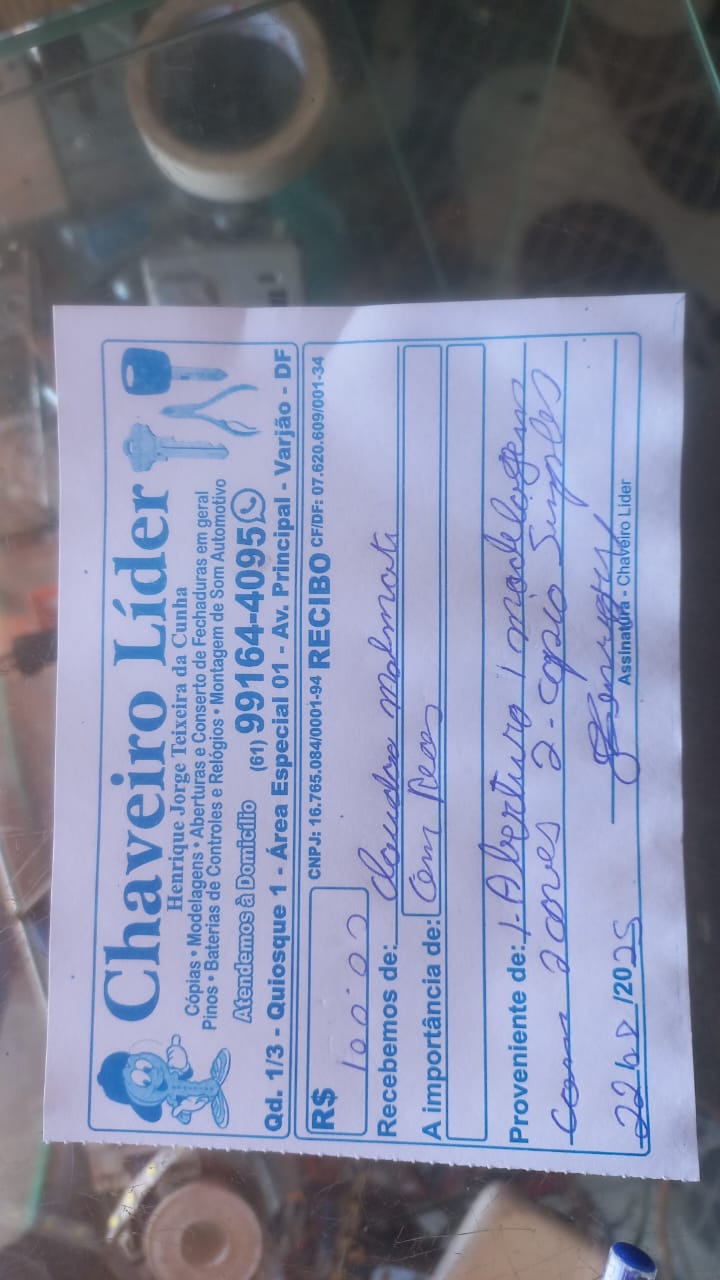 Chaveiro Líder
Henrique Jorge Teixeira da Cunha
Cópias • Modelagens • Aberturas e Conserto de Fechaduras em geral
Pinos • Baterias de Controles e Relógios • Montagem de Som Automotivo
Atendemos à Domicílio (61) 99164-4095
Qd. 1/3 - Quiosque 1 - Área Especial 01 - Av. Principal - Varjão - DF
R$ 100,00 CNPJ: 16.765.084/0001-94 RECIBO CF/DF: 07.620.609/001-34
Recebemos de:
A importância de: Cem Reais
Proveniente de: 1-Abertura 1 modelagem
com 2 chaves 2-copia Simples
/2025
Assinatura - Chaveiro Líder